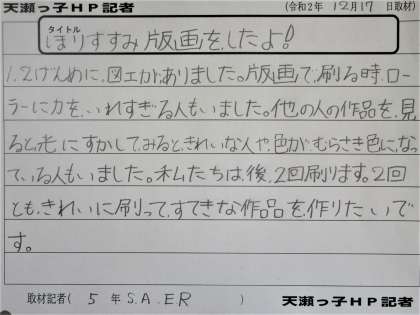 天瀬っ子HP記者 (令和2年 12月17 日取材)
タイトル
ほりすすみ版画をしたよ!
1.2げんめに、図工がありました。版画で、刷る時、ロー
ラーに力を、いれすぎる人もいました。他の人の作品を、見
ると、光にすかしてみると、きれいな人や、色が、むらさき色に、なっ
ている人もいました。私たちは、後、2回刷ります。2回
とも、きれいに刷って、すてきな作品を、作りたいで
す。
取材記者( 5 年 S.A.ER ) 天瀬っ子HP記者